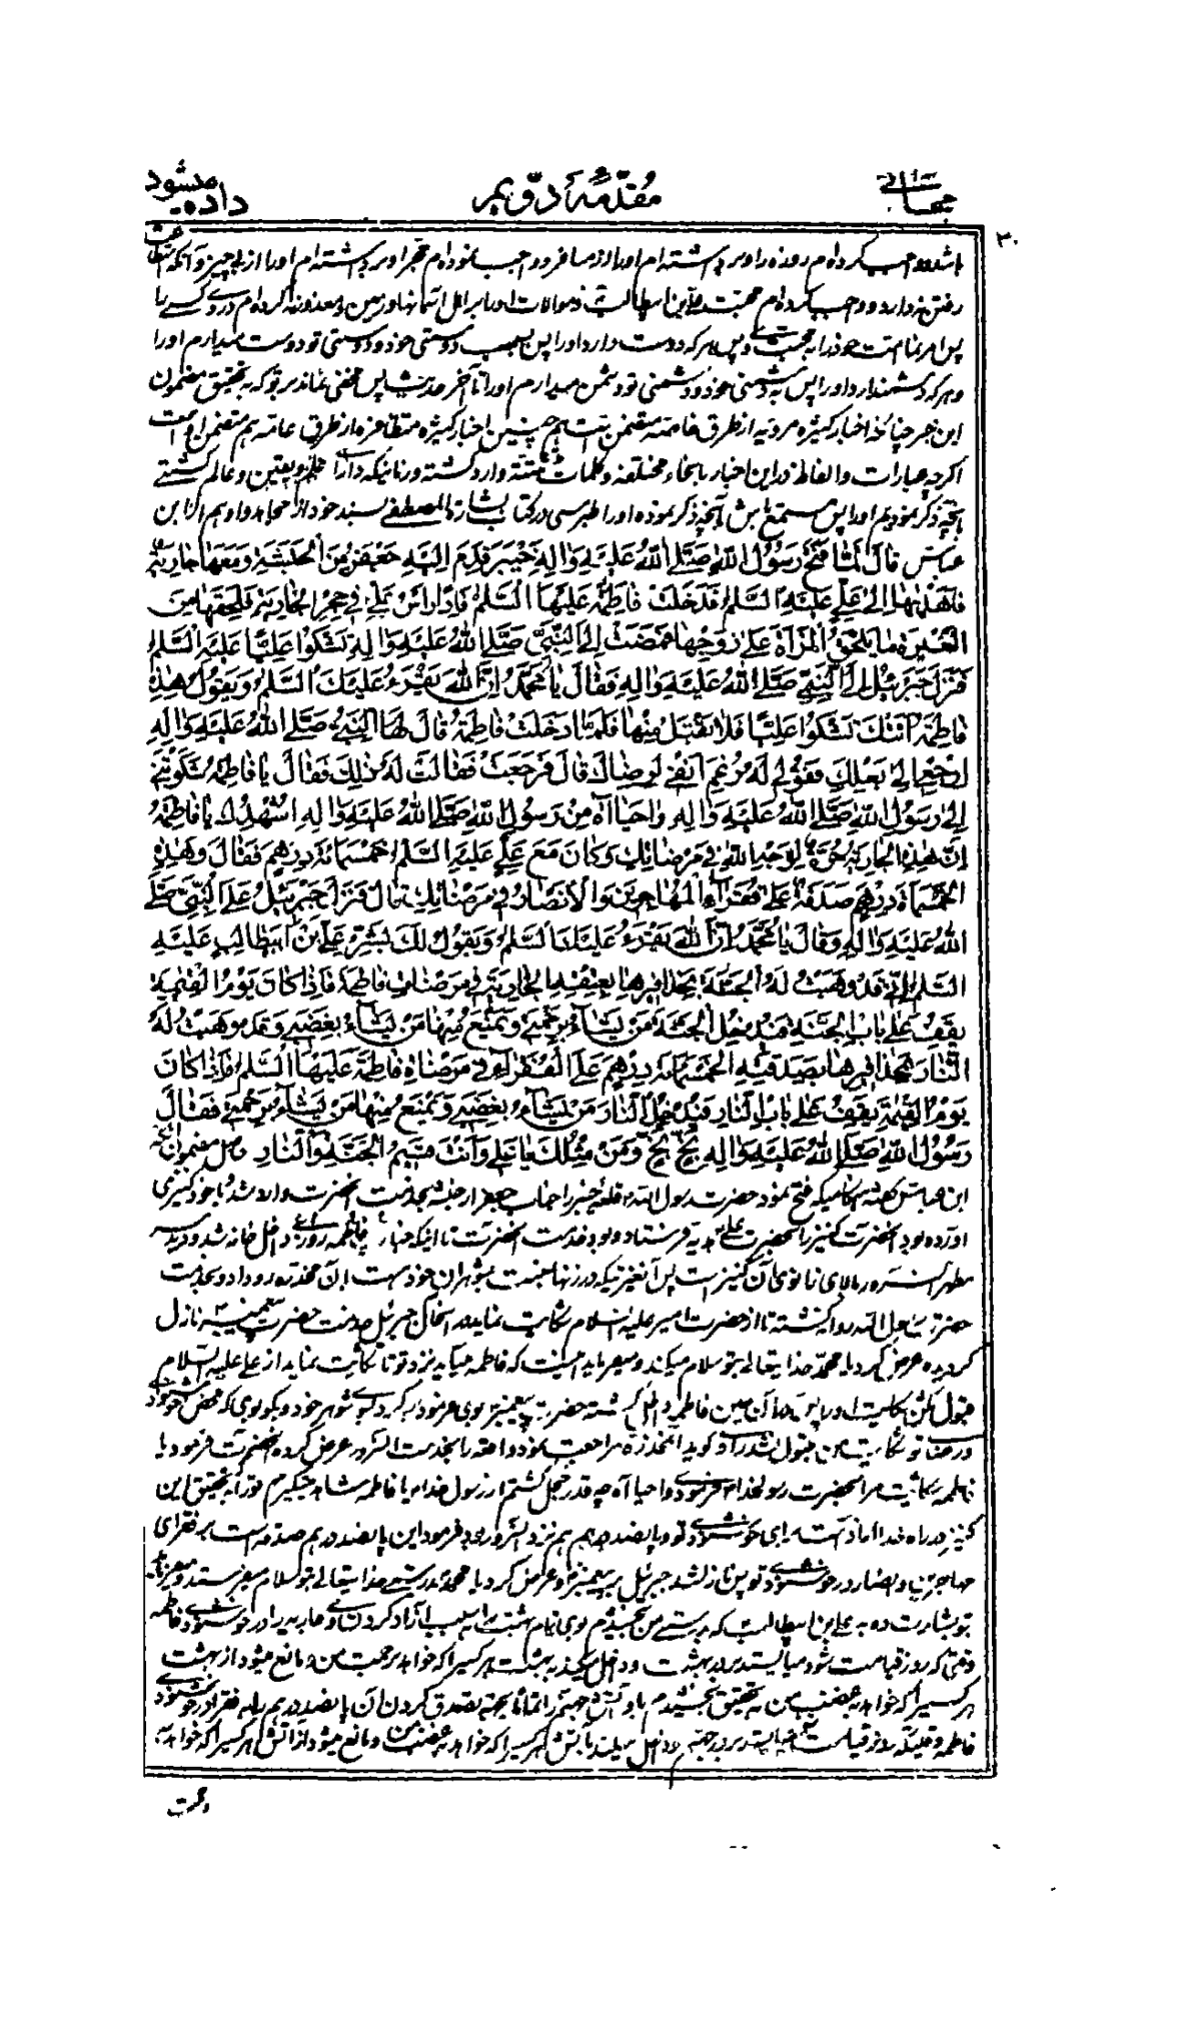 مقدمهٔ دویم
داده میشود
۳۰
باشد واجب کرده‌ام روزه را و برداشته‌ام او را از مسافر و واجب نموده‌ام حج را و برداشته‌ام او را از
رفتن ندارد و واجب کرده‌ام محبت علی بن ابیطالب و موالات او را بر اهل آسمانها و زمین و معذور نکرده‌ام در وی کسی را
پس امر نما امت خود را به محبت وی پس هر که دوست دارد او را پس بسبب دوستی خود و دوستی تو دوست میدارم او را
و هر که دشمن دارد او را پس به دشمنی خود و دشمنی تو دشمن میدارم او را تا آخر حدیث پس مخفی نماند بر تو که به تحقیق مضمون
این خبر چنانکه اخبار کثیره مرویه از طرق خاصه متضمن است همچنین اخبار کثیره متظافره از طرق عامه هم متضمن او است
اگر چه عبارات و الفاظ در این اخبار بانحاء مختلفه و کلمات متشتته وارد گشته و زمانیکه دارای علم و یقین و عالم گشتی
بآنچه ذکر نمودیم او را پس مستمع باش آنچه ذکر نموده او را طبرسی در کتاب بشارة المصطفی بسند خود از مجاهد و او هم از ابن
عباس قال لما فتح رسول الله صلى الله عليه واله خيبر قدم اليه جعفر من الحبشة ومعها جارية
فاهداها الى علي عليه السلم فدخلت فاطمة عليها السلم فاذا راس علي في حجر الجارية فلحقها من
الغيرة ما يلحق المرأة على زوجها فمضت الى النبي صلى الله عليه واله تشكوا عليا عليه السلم
فنزل جبرئيل الى النبي صلى الله عليه واله فقال يا محمد ان الله يقرء عليك السلم ويقول هذه
فاطمة اتتك تشكوا عليا فلا تقبل منها فلما دخلت فاطمة قال لها النبي صلى الله عليه واله
ارجعي الى بعلك فقولي له رغم انفي لرضاك قال فرجعت فقالت له ذلك فقال يا فاطمة شكوتني
الى رسول الله صلى الله عليه واله واحياآه من رسول الله صلى الله عليه واله اشهدك يا فاطمة
ان هذه الجارية حرة لوجه الله في مرضاتك وكان مع علي عليه السلم خمسمائة درهم فقال وهذه
الخمسمائة درهم صدقة على فقراء المهاجرين والانصار في مرضاتك قال فنزل جبرئيل على النبي صلى
الله عليه واله وقال يا محمد ان الله يقرء عليك السلم ويقول لك بشر علي بن ابيطالب عليه
السلم اني قد وهبت له الجنة بحذافيرها بعتقه الجارية في مرضات فاطمة فاذا كان يوم القيمة
يقف علي باب الجنة فيدخل الجنة من يشاء برحمتي ويمنع منها من يشاء بغضبي وقد وهبت له
النار بحذافيرها بصدقته الخمسمائة درهم على الفقراء في مرضاة فاطمة عليها السلم فاذا كان
يوم القيمة يقف علي باب النار فيدخل النار من يشاء بغضبي ويمنع منها من يشاء برحمتي فقال
رسول الله صلى الله عليه واله بخ بخ ومن مثلك يا علي وانت قسيم الجنة والنار حاصل مضمون
ابن عباس گفته هنگامیکه فتح نمود حضرت رسول الله قلعه خیبر را جناب جعفر از حبشه بخدمت آنحضرت وارد شد و با خود کنیزی
آورده بود آنحضرت کنیز را بحضرت علی هدیه فرستاد و بود خدمت آنحضرت تا اینکه جناب فاطمه روزی داخل خانه شد و دید سر
مطهر آنسرور بالای زانوی آن کنیز است پس آن غیرتیکه در زنها نسبت بشوهران خود هست بر آن مخدره رو داد و بخدمت
حضرت رسول الله روانه گشته تا از حضرت امیر علیه السلام شکایت نماید در آنحال جبرئیل خدمت حضرت پیغمبر نازل
گردیده عرض کرد یا محمد خدایتعالی بتو سلام میکند و میفرماید اینست که فاطمه میآید نزد تو تا شکایت نماید از علی علیه السلام
قبول مکن شکایت او را پس در آن حین فاطمه داخل گشته حضرت پیغمبر بوی فرمود برگرد بسوی شوهر خود و بگو بوی که محض خوشنودی
فاطمه شکایت مرا بحضرت رسولخدا نمودی واحیا آه چه قدر خجل گشتم از رسول خدا یا فاطمه شاهد میگیرم تو را به تحقیق این
کنیز در راه خدا آزاد است برای خوشنودی تو و پانصد درهم هم نزد آنسرور بود فرمود این پانصد درهم صدقه است بر فقرای
مهاجرین و انصار در خوشنودی تو پس نازل شد جبرئیل بر پیغمبر و عرض کرد یا محمد بدرستی خدایتعالی بتو سلام میفرستد و میفرماید
وقتی که روز قیامت شود میایستد بر در بهشت و داخل میکند به بهشت هر کسیرا که خواهد برحمت من و مانع میشود از بهشت
هر کسیرا که خواهد به غضب من به تحقیق بخشیدم باو آتش جهنم را تماما بجهة تصدق کردن آن پانصد درهم را به فقرا در خوشنودی
فاطمه وقتیکه روز قیامت میایستد بر در جهنم داخل میکند بآتش هر کسیرا که خواهد به غضب من و مانع میشود از آتش هر کسیرا که خواهد